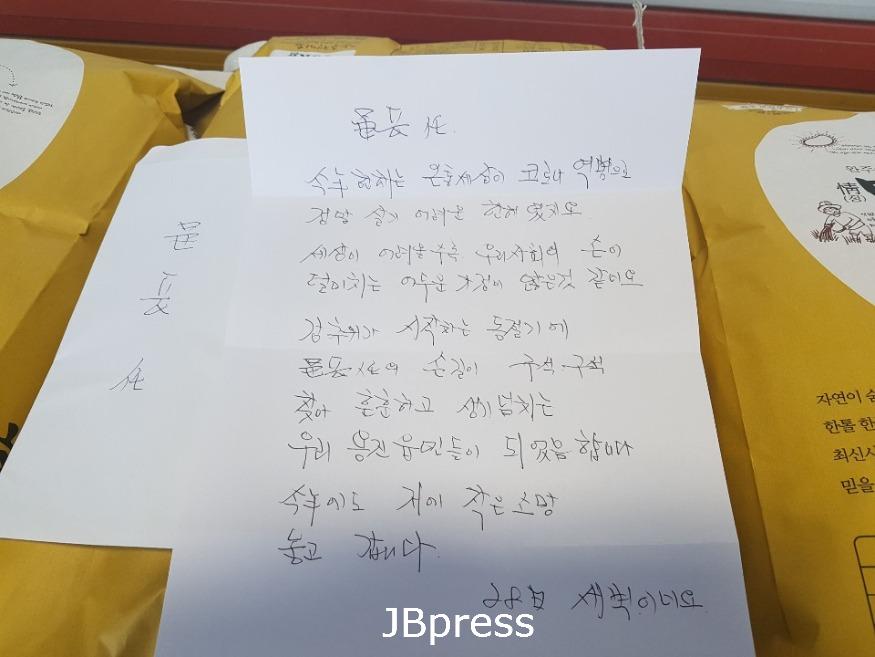 面長任.
今年 한해는 온통세상이 코로나 역병으로
정말 살기 어려운 한해 였지요
세상이 어려울수록 우리사회의 손이
덜미치는 어두운 가정이 많은것 같아요
강추위가 시작하는 동절기에
面長任의 손길이 구석·구석
찾아 훈훈하고 생기넘치는
우리 용진읍민들이 되였음 합니다
今年에도 저에 작은소망
놓고 갑니다.
28日 새벽.이네요
面
長
任
완주
情
(정)
자연이 숨
한톨 한
최신시
믿을
JBpress